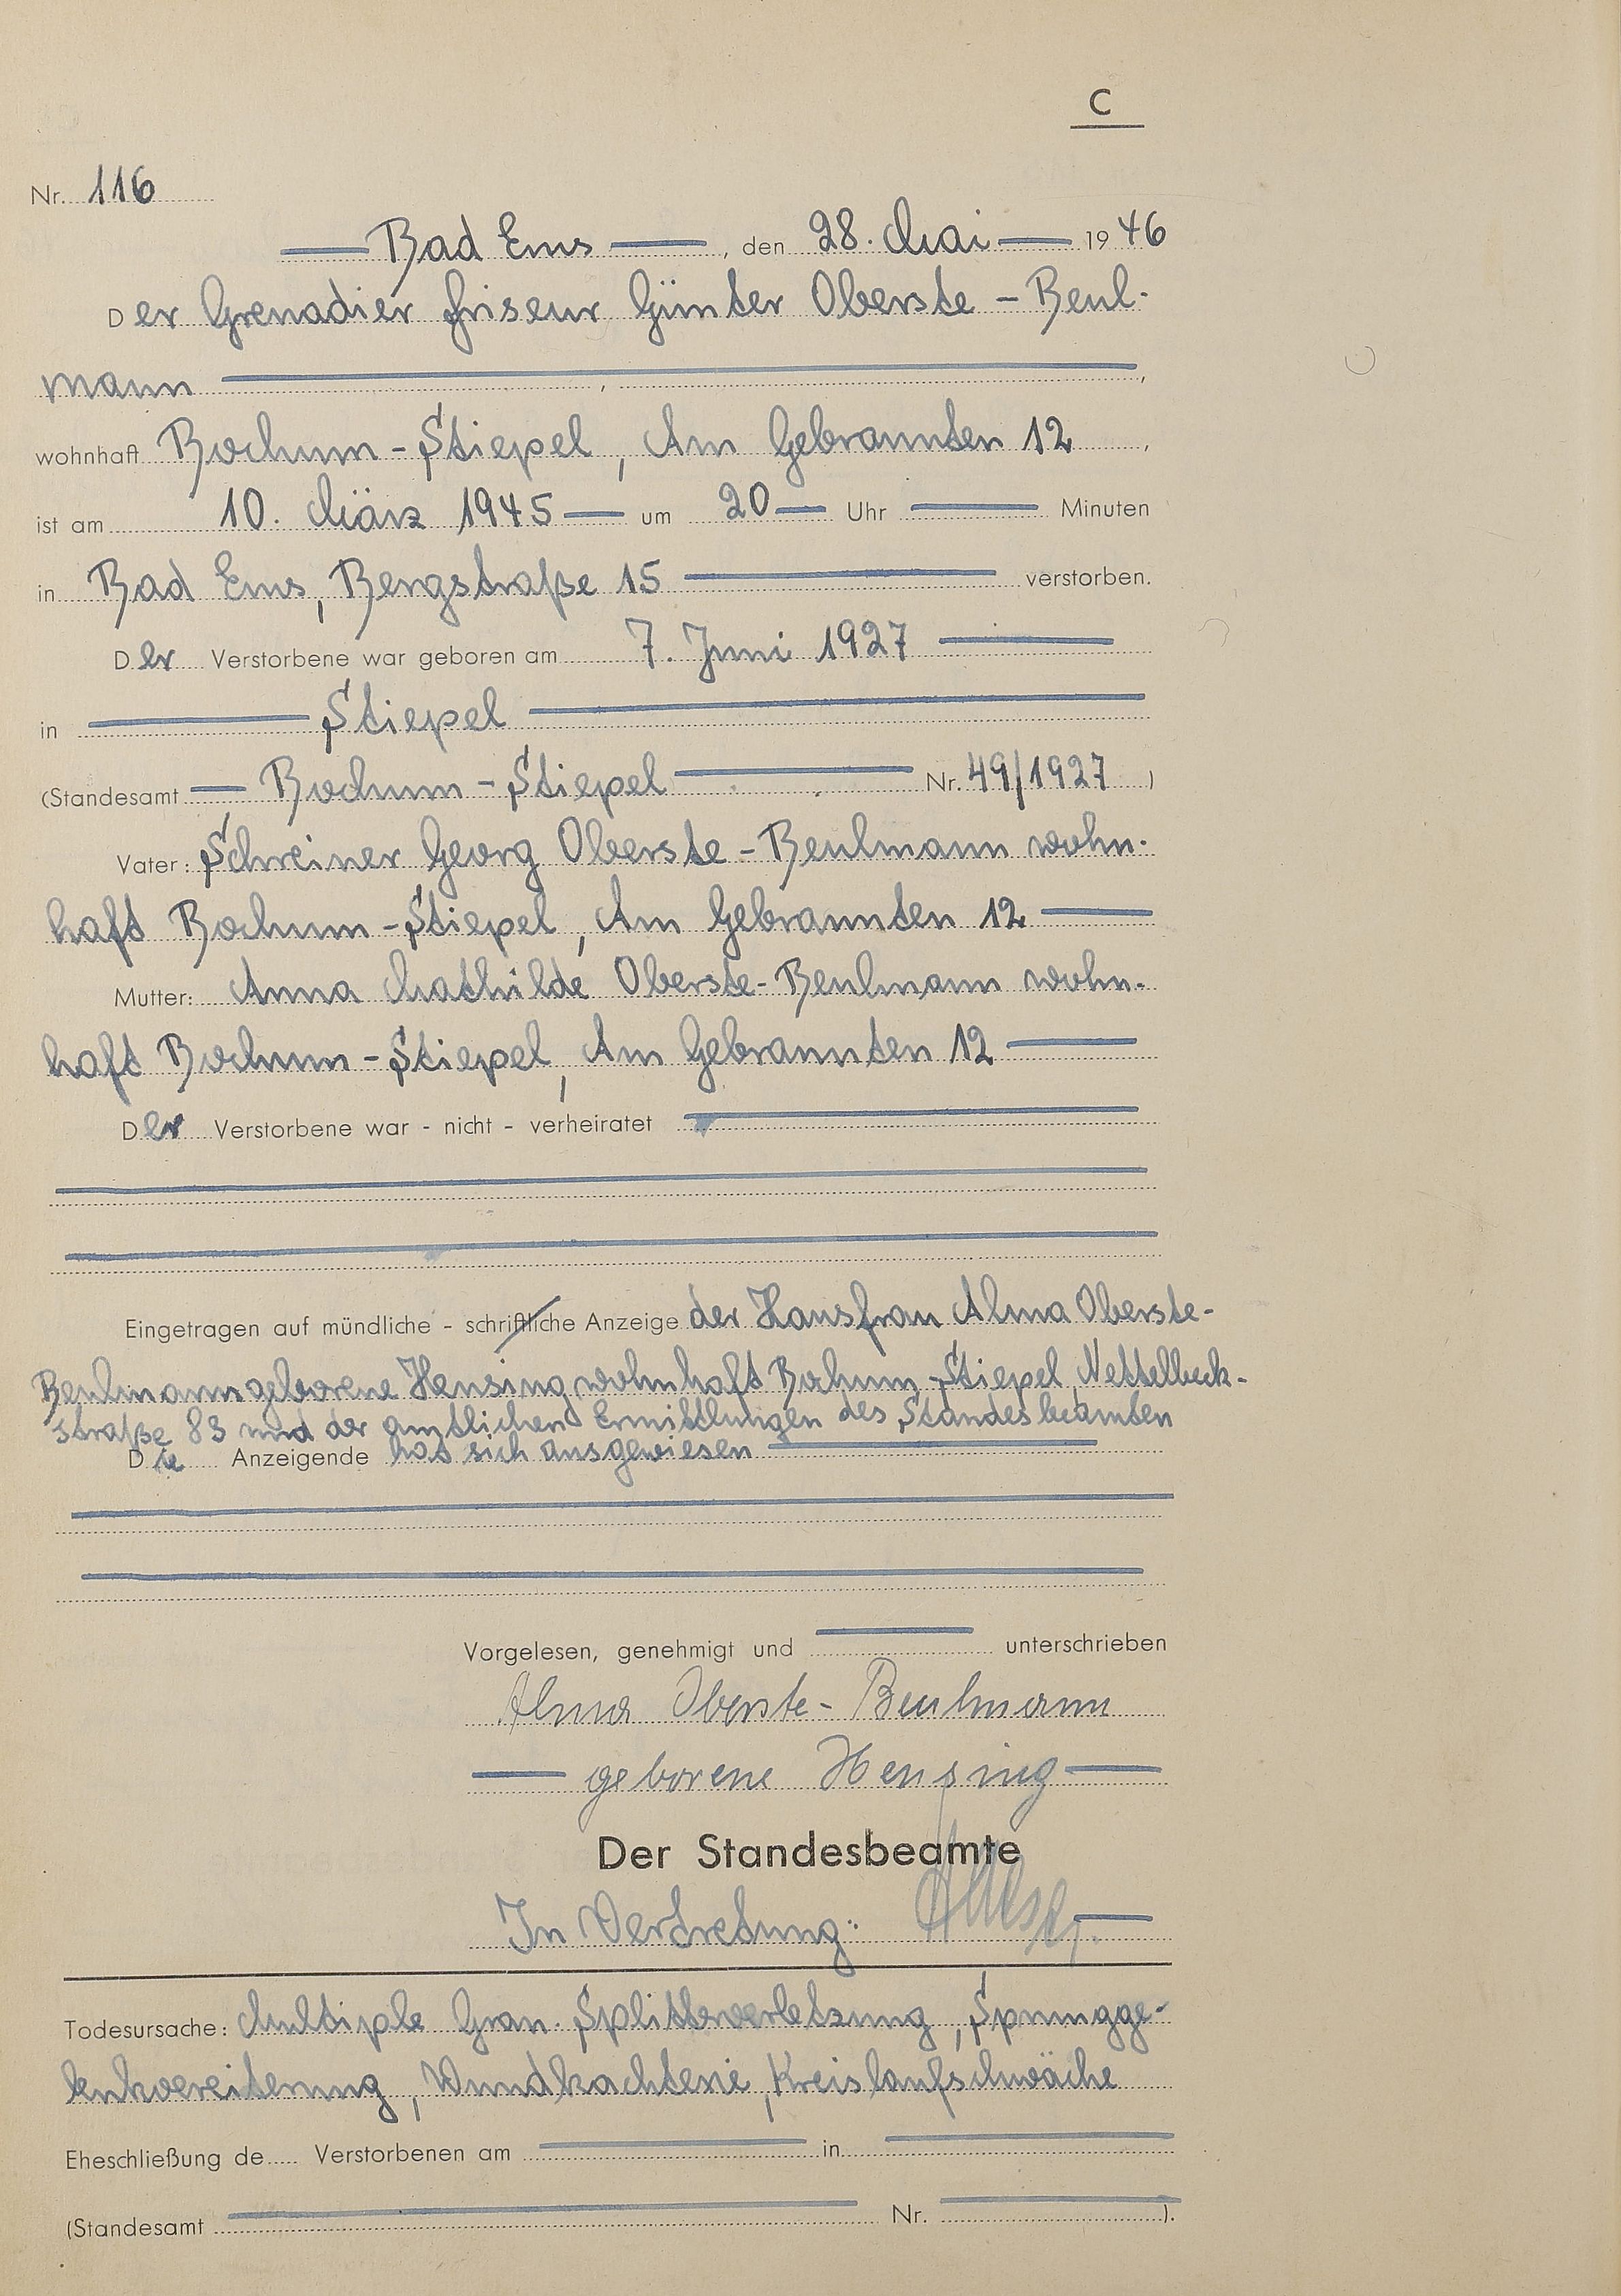 C
Nr. 116
Bad Ems, den 28. Mai 1946
Der Grenadier Friseur Günter Oberste-Beul-
mann , ,
wohnhaft Bochum-Stiepel, Am Gebrannten 12 ,
ist am 10. März 1945 um 20 Uhr Minuten
in Bad Ems, Bergstraße 15 verstorben.
Der Verstorbene war geboren am 7. Juni 1927
in Stiepel
(Standesamt Bochum-Stiepel Nr. 49/1927 )
Vater: Schreiner Georg Oberste-Beulmann wohn-
haft Bochum-Stiepel, Am Gebrannten 12
Mutter: Anna Mathilde Oberste-Beulmann wohn-
haft Bochum-Stiepel, Am Gebrannten 12
Der Verstorbene war - nicht - verheiratet
Eingetragen auf mündliche - schriftliche Anzeige der Hausfrau Alma Oberste-
Beulmann geborene Hensing wohnhaft Bochum-Stiepel, Nettelbeck-
straße 83 und der amtlichen Ermittlungen des Standesbeamten
Die Anzeigende hat sich ausgewiesen
Vorgelesen, genehmigt und unterschrieben
Alma Oberste-Beulmann
geborene Hensing
Der Standesbeamte
In Vertretung:
Todesursache: Multiple Gran. Splitterverletzung, Sprungge-
lenkvereiterung, Wundkachterie, Kreislaufschwäche
Eheschließung de..... Verstorbenen am in
(Standesamt Nr. ).